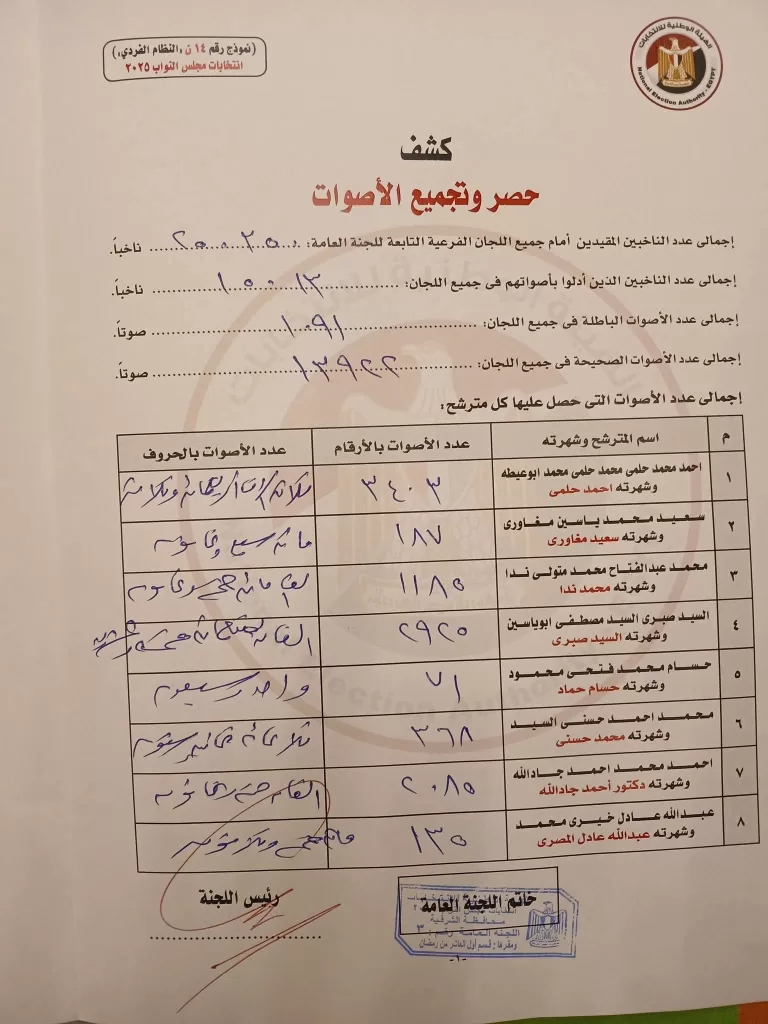 (نموذج رقم ١٤ ن، النظام الفردي،)
انتخابات مجلس النواب ٢٠٢٥
الهيئة الوطنية للانتخابات
National Election Authority - EGYPT
كشف
حصر وتجميع الأصوات
إجمالى عدد الناخبين المقيدين أمام جميع اللجان الفرعية التابعة للجنة العامة: ناخباً.
إجمالى عدد الناخبين الذين أدلوا بأصواتهم فى جميع اللجان: ١٥٠١٣ ناخباً.
إجمالى عدد الأصوات الباطلة فى جميع اللجان: ١٠٩١ صوتاً.
إجمالى عدد الأصوات الصحيحة فى جميع اللجان: ١٣٩٢٢ صوتاً.
إجمالى عدد الأصوات التى حصل عليها كل مترشح:
م اسم المترشح وشهرته عدد الأصوات بالأرقام عدد الأصوات بالحروف
١ احمد محمد حلمى محمد حلمى محمد ابوعيطه ٣٤٠٣ ثلاثة آلاف أربعمائة وثلاثة
وشهرته احمد حلمى
٢ سعيد محمد ياسين مغاورى ١٨٧ مائة سبع وثمانون
وشهرته سعيد مغاورى
٣ محمد عبدالفتاح محمد متولى ندا ١١٨٥ الف مائة خمسة وثمانون
وشهرته محمد ندا
٤ السيد صبرى السيد مصطفى ابوياسين ٢٩٢٥ الفان تسعمائة خمسة وعشرون
وشهرته السيد صبرى
٥ حسام محمد فتحى محمود ٧١ واحد وسبعون
وشهرته حسام حماد
٦ محمد احمد حسنى السيد ٣٦٨ ثلاثمائة ثمانية وستون
وشهرته محمد حسنى
٧ احمد محمد احمد جادالله ٢٠٨٥ الفان خمسة وثمانون
وشهرته دكتور أحمد جادالله
٨ عبدالله عادل خيرى محمد ١٣٥ مائة خمسة وثلاثون
وشهرته عبدالله عادل المصرى
خاتم اللجنة العامة رئيس اللجنة
محافظة الشرقية
اللجنة العامة رقم: ٣
ومقرها: قسم أول العاشر من رمضان
-١-